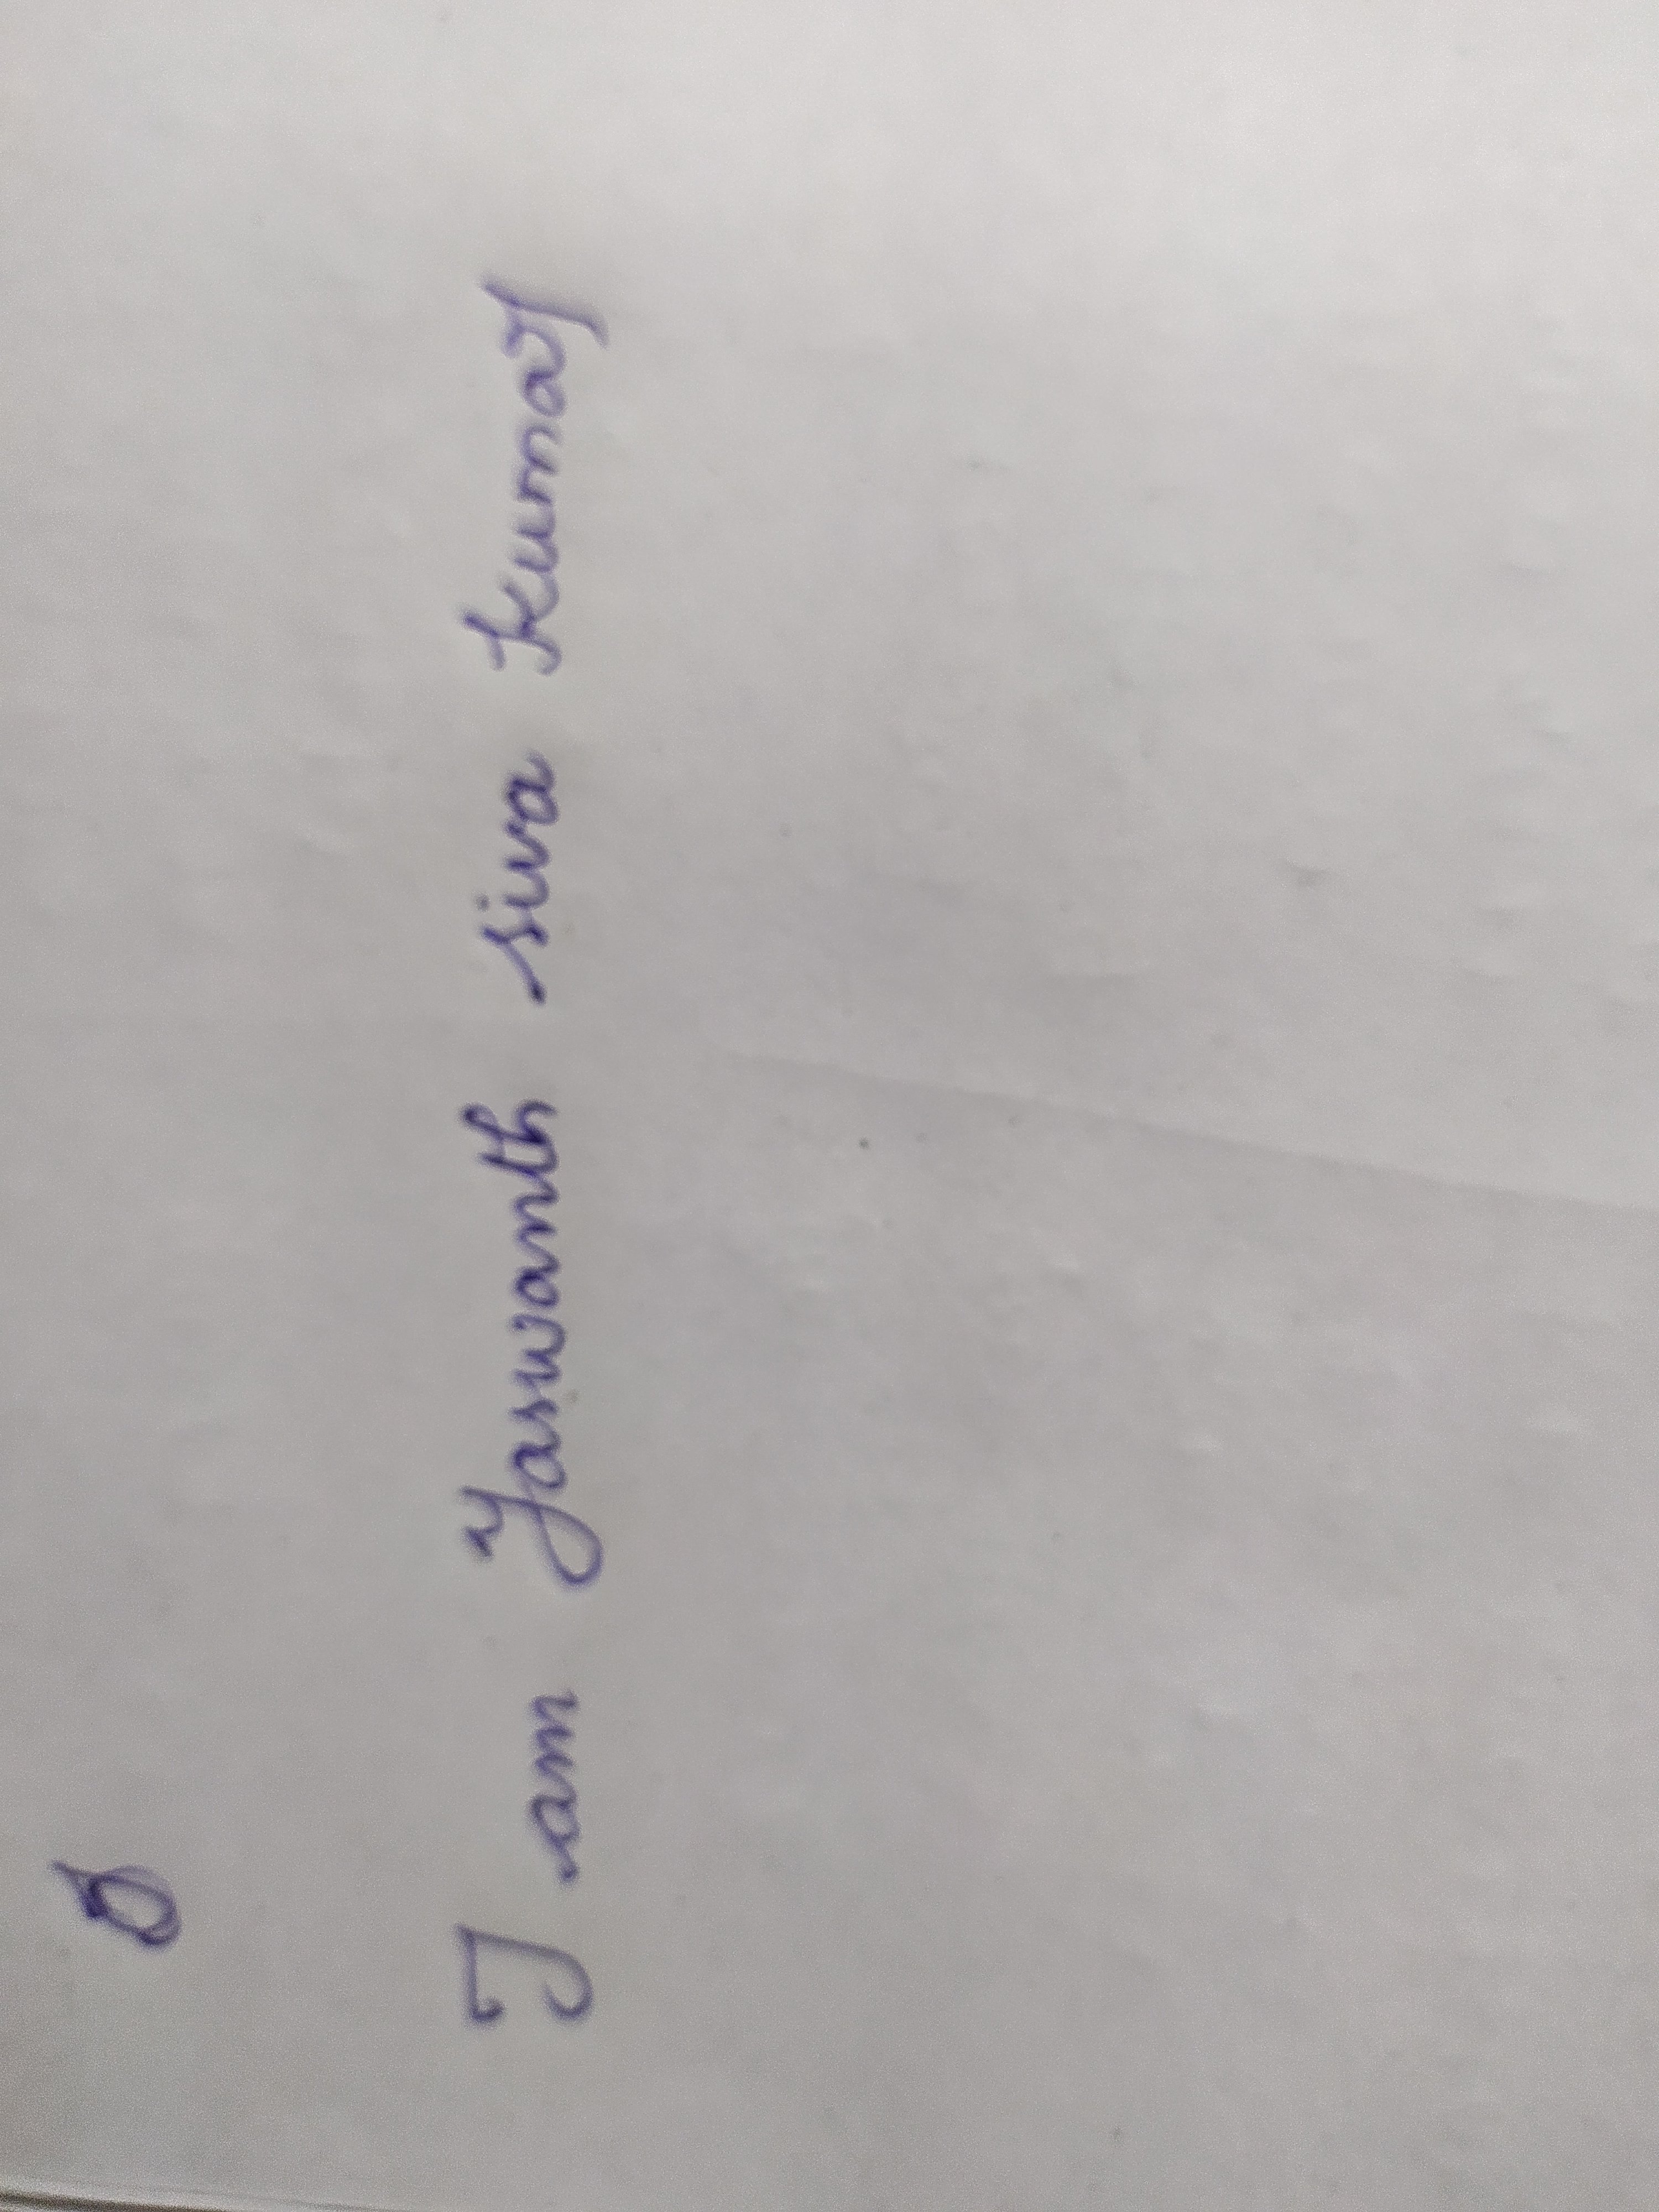 I am Yaswanth siva kumar